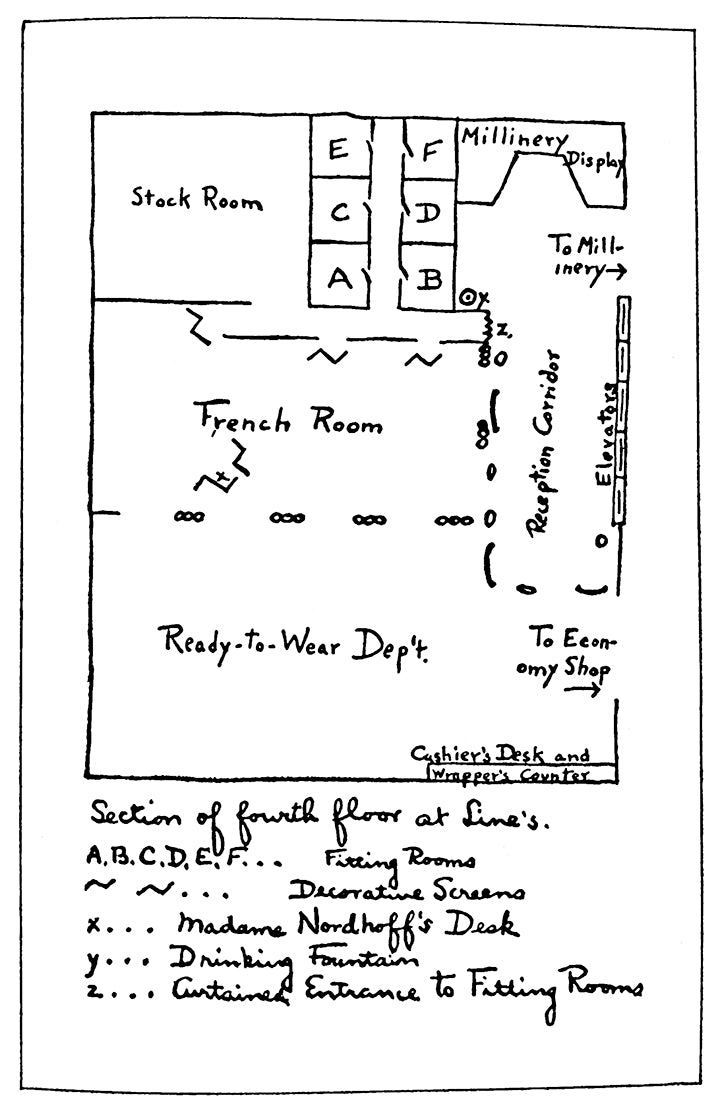 E
F
Millinery
Display
Stock Room
C
D
To Mill-
inery→
A
B
y
z.
French Room
x
Reception Corridor
Elevators
Ready-to-Wear Dep't.
To Econ-
omy Shop
Cashier's Desk and
Wrapper's Counter
Section of fourth floor at Line's.
A.B.C.D.E.F... Fitting Rooms
... Decorative Screens
x... Madame Nordhoff's Desk
y... Drinking Fountain
z... Curtained Entrance to Fitting Rooms